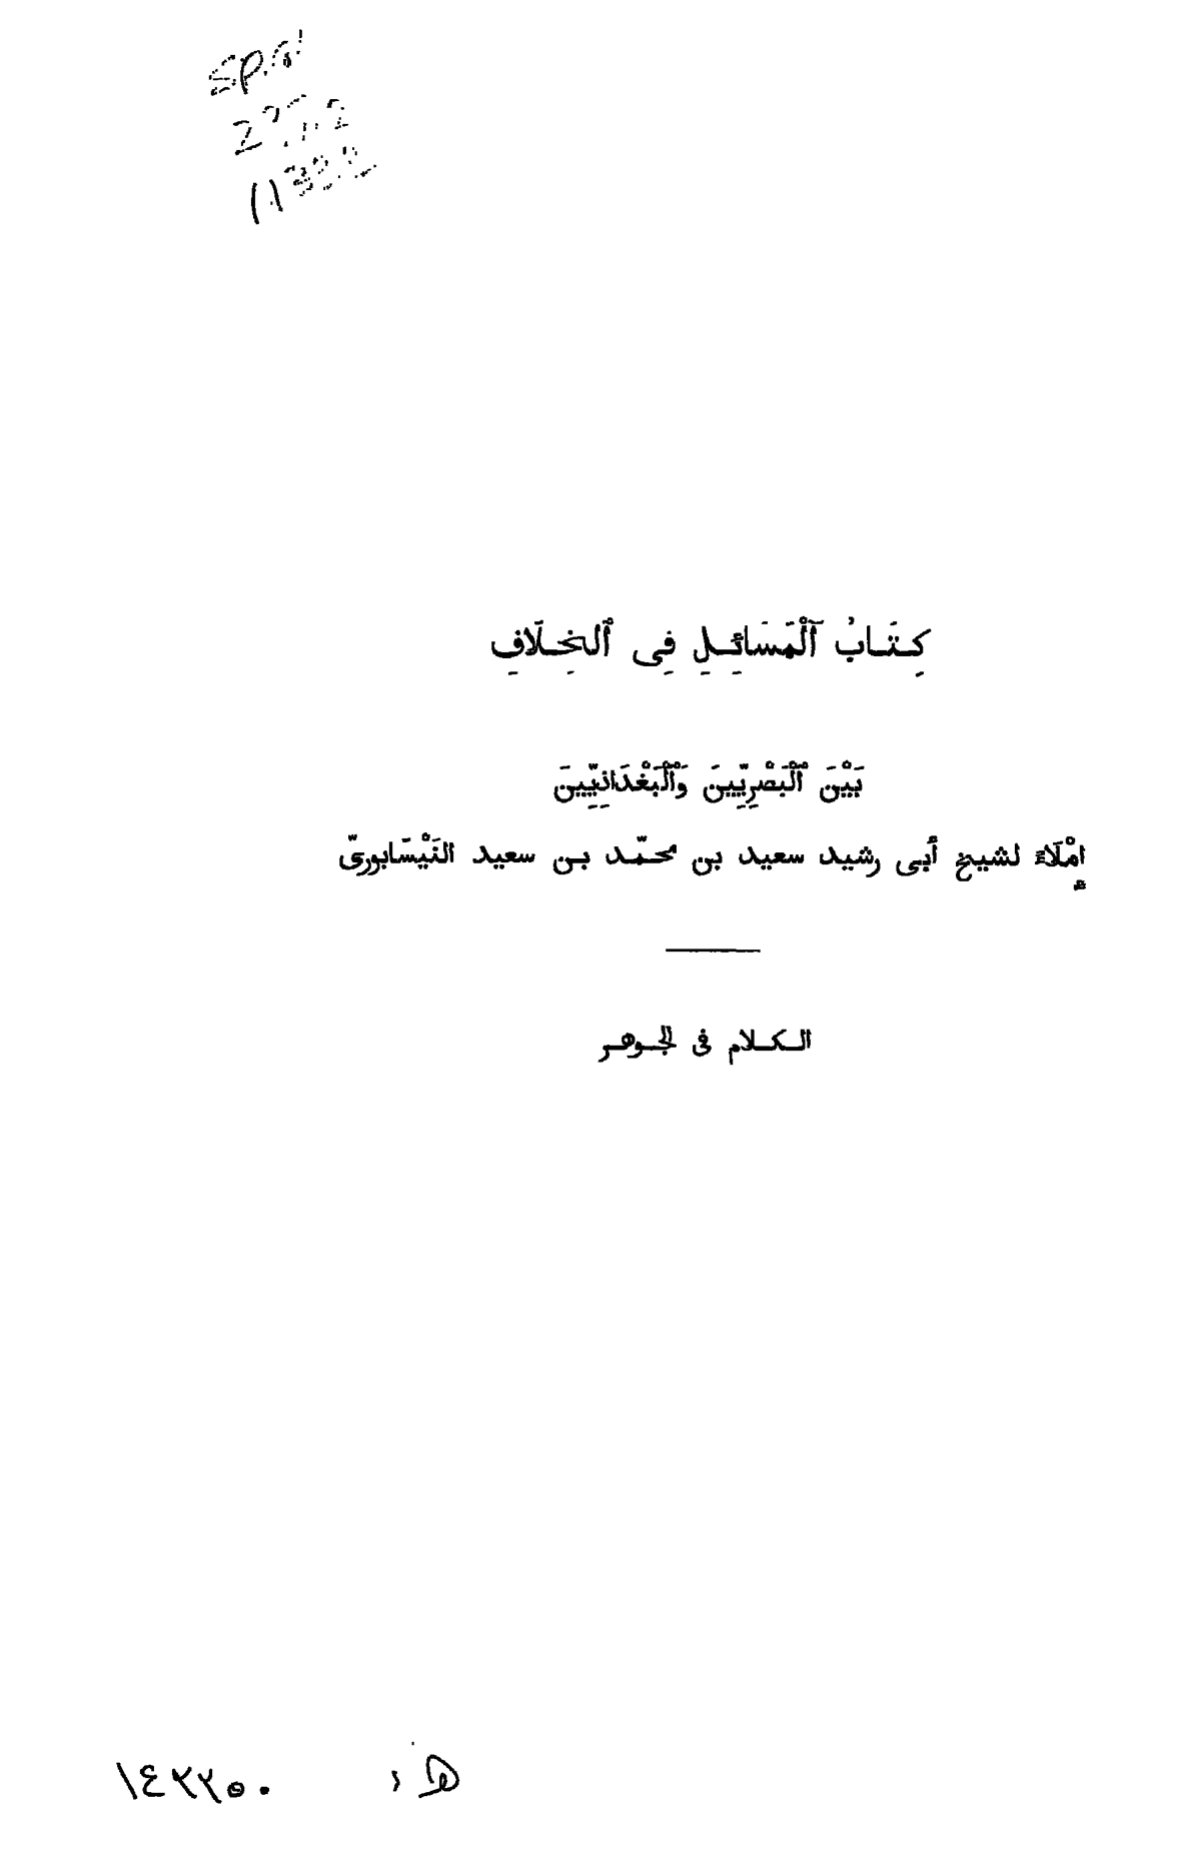 كِتَابُ ٱلْمَسَائِلِ فِى ٱلْخِلَافِ
بَيْنَ ٱلْبَصْرِيِّينَ وَٱلْبَغْدَادِيِّينَ
إِمْلَاءَ لشيخ أَبى رشيد سعيد بن محمّد بن سعيد النَيْسَابورىّ
الكلام فى الجوهر